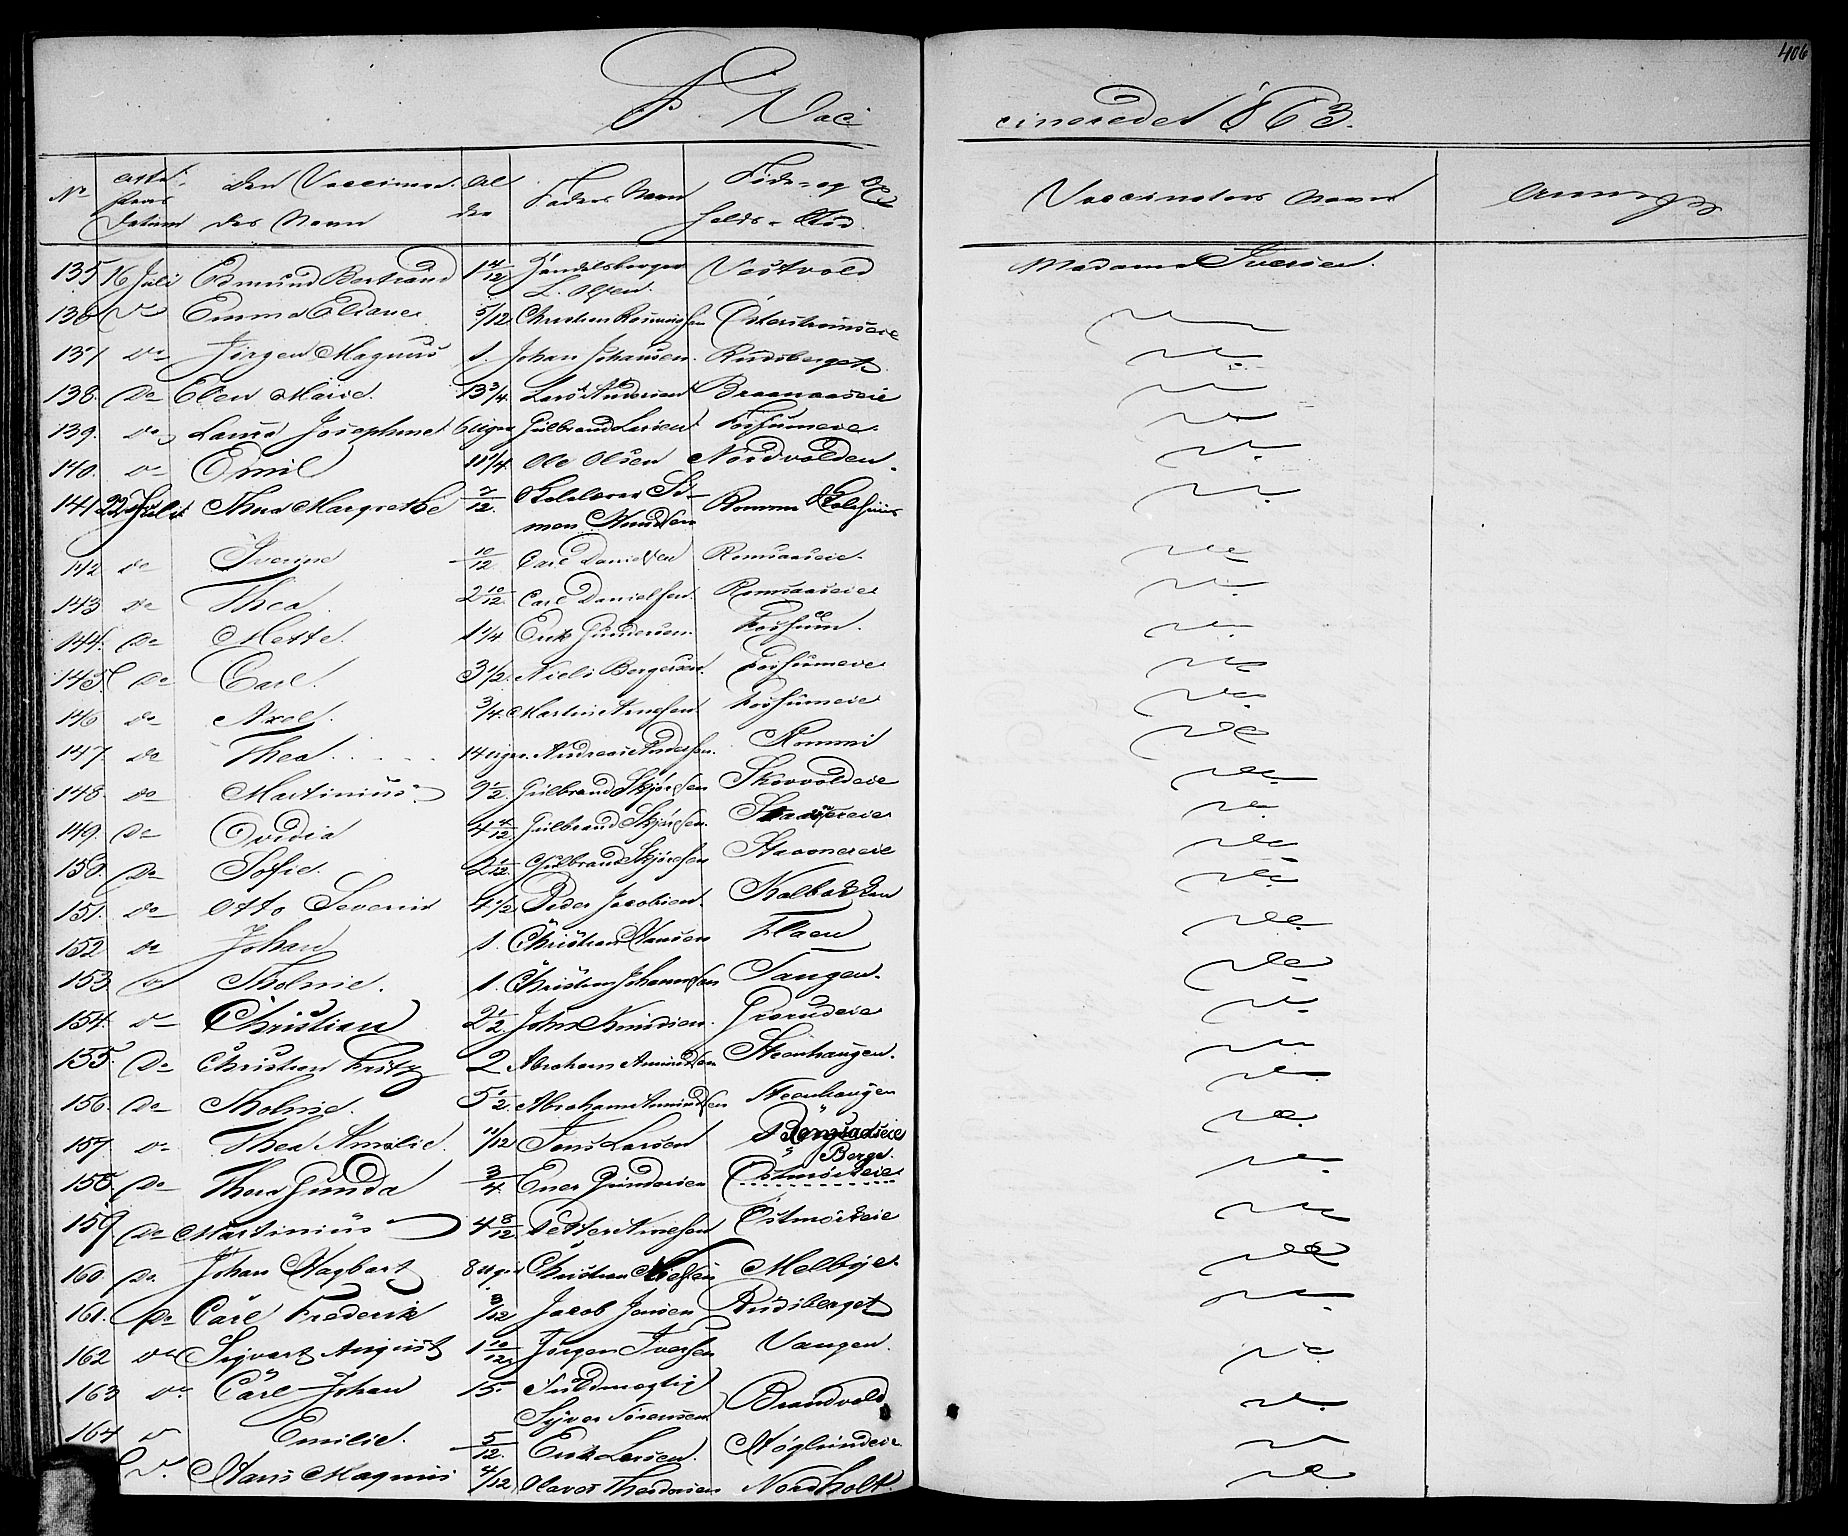 406
F. Vaccineredet 1863.
No Attestens Datum Den Vaccinerdes Navn Alder Faders Navn Føde- og Opholds-Sted Vaccinators Navn Anmærk
135 16 Juli Edmund Bertrand 1 4/12 Handelsborger L. Olsen. Vestvold Madame Iversen.
136 Do Emma Eliane 5/12 Christian Østerstrømseie
137 Do Jørgen Magnus 1. Johan Johansen. Rudsberget Do
138. Do Elen Marie. 13 3/4 Lars Andersen Braanaaseie Do
139. Do Laura Josephine 6 uger Gulbrand Larsen Fossumeie. Do
140. Do Emil 11 1/4 Ole Olsen Nordvolden. Do
141 22 Juli Thea Margrethe 7/12 Skolelærer Simon Knudsen Rommi Skolehuus Do
142 Do Iverine 10/12 Carl Danielsen Romsaaseie. Do
143 Do Thea. 2 10/12 Carl Danielsen. Romsaaseie Do
144. Do Mette. 1 1/4 Erik Gundersen. Fossum. Do
145 Do Carl. 3 1/2 Niels Borgersen Fossumeie Do
146 Do Axel. 3/4 Martin Arnesen. Fossumeie Do
147. Do Thea. 14 uger Andreas Andersen. Rommi Do
148. Do Martinius. 9 1/2 Gulbrand Skjørsen Skovvoldeie Do
149. Do Ovidia 4 4/12 Gulbrand Skjørsen. Do
150. Do Sofie. 2 1/12 Gulbrand Skjørsen Do
151. Do Otto Severin 4 1/2 Peder Jacobsen. Kolbækken Do
152 Do Johan 1. Christian Hansen Flaen Do
153 Do Tholine. 1. Christian Johannesen Tangen. Do
154. Do Christian 2 1/2 John Knudsen. Grorudeie Do
155. Do Christian Fritz 2 Abraham Amundsen Steenhaugen. Do
156. Do Tholine. 5 1/2 Abraham Amundsen Steenhaugen Do
157 Do Thea Amalie. 11/12 Jens Larsen Romsaaseie Berge. Do
158. Do Thora Gunda 3/4 Ener Gundersen Østmørkeie Do
159 Do Martinius 4 8/12 Petter Arnesen Østmørkeie Do
160 Do Johan Hagbart 8 uger Christian Melbøje. Do
161. Do Carl Frederik 3/12 Jacob Jensen Rudsberget Do
162 Do Sigvart August 1 10/12 Jørgen Iversen Vangen. Do
163 Do Carl Johan 15 Fuldmægtig Syver Sørensen Brandvold Do
164 Do Emilie. 5/12 Erik Larsen. Do
Do. Hans Magnus 4/12 Olaves Theodorsen Nordholt. Do